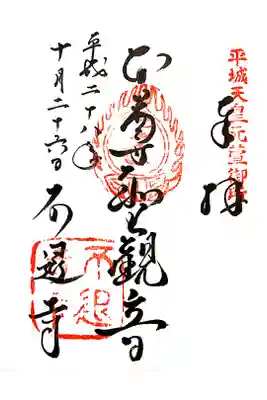 平城天皇元萱御所
奉拝
本尊聖觀音
平成二十八年
十月二十六日
不退寺